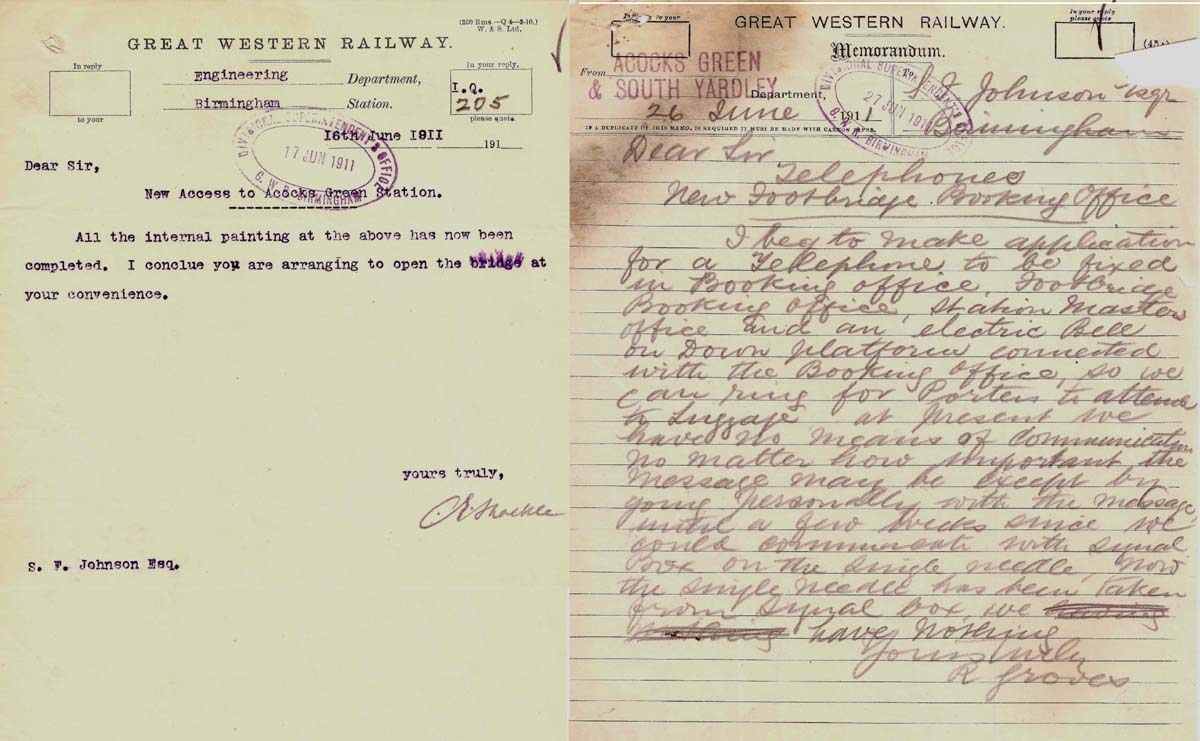 (250 Rms—Q 4—3-10.)
W. & S. Ltd.
GREAT WESTERN RAILWAY.
In reply
to your
Engineering Department,
Birmingham Station.
In your reply,
I.Q.
205
please quote.
16th June 1911
191
DIVISIONAL SUPERINTENDENT'S OFFICE
17 JUN 1911
G. W. R. BIRMINGHAM
Dear Sir,
New Access to Acocks Green Station.
All the internal painting at the above has now been
completed. I conclue you are arranging to open the bridge at
your convenience.
yours truly,
S. F. Johnson Esq.
to your
GREAT WESTERN RAILWAY.
Memorandum.
In your reply
please quote
From
ACOCKS GREEN
& SOUTH YARDLEY
Department,
26 June 1911
To
S F Johnson Esqr
Birmingham
DIVISIONAL SUPERINTENDENT'S OFFICE
27 JUN 1911
G. W. R. BIRMINGHAM
IF A DUPLICATE OF THIS MEMO. IS REQUIRED IT MUST BE MADE WITH CARBON PAPER.
Dear Sir
Telephones
New Footbridge Booking Office
I beg to make application
for a Telephone to be fixed
in Booking office, Footbridge
Booking office, Station Master
office and an electric Bell
on Down platform connected
with the Booking office, so we
can ring for Porters to attend
to Luggage at present we
have no means of communication
no matter how important the
message may be except by
going personally with the message
until a few weeks since we
could communicate with Signal
Box on the single needle, now
the single needle has been taken
from Signal box we
have nothing
Yours truly
R Groves